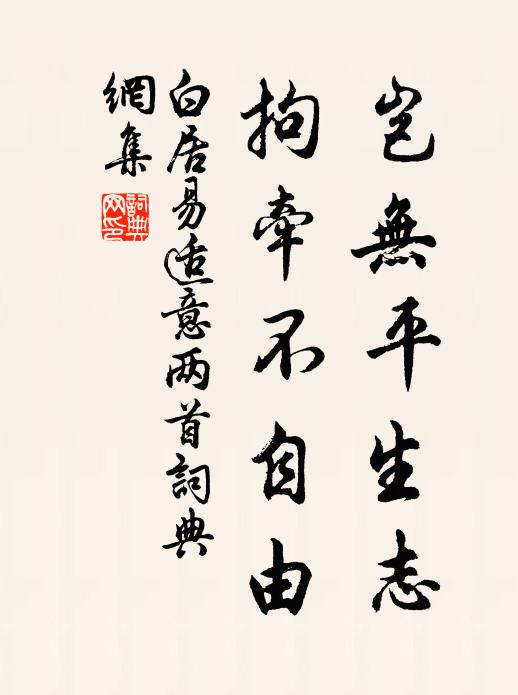 豈無平生志
拘牽不自由
白居易适意两首詞典
網集
詞典
网印